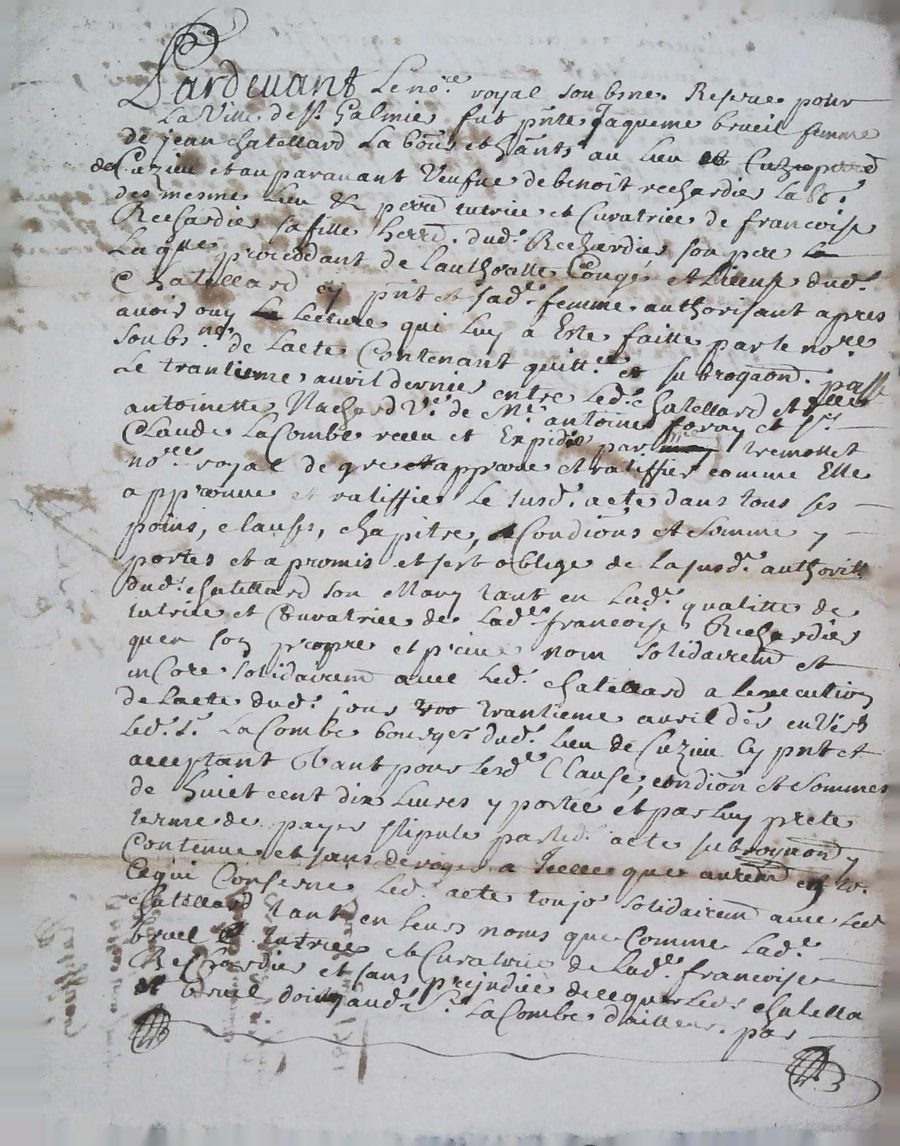 Pardevant Le no.re royal soub.ne Reserve pour
La Ville de St. Galmier fut p.nte Jaqueme brueil femme
de jean chatellard Labou.r et h.ants au Lieu
de Cuzieu et auparavant Veufve de benoit rechardie labo.r
des mesme Lieu tutrice et Curatrice de francoise
Rechardie sa fille herre. dud.t Rechardie son pere
Laq.le proceddant de Lauthoritte Conge et Licence dud.t
Chatellard cy p.nt et sad.te femme authorisant apres
avoir ouy La Lecture qui Luy a Este faitte par le no.re
soubs.ne de Lacte Contenant quitt.ce et subrogaon. passe
Le trantieme avril dernier entre Led.t chatellard et
antoinette Vachard V.e de M.e antoine foray et s.r
Claude LaCombe receu et Expidie par tremollet
no.re royal de gre approuve et ratiffie comme Elle
approuve et ratiffie Le susd.t acte dans tous ses
poins, clauses, chapitre, Condions et somme y
portes et a promis et sest oblige de La susd.te authoritte
dud.t chatellard son Mary tant en Lad.te qualitte de
tutrice et Curatrice de Lad.te francoise Rechardie
quen son propre et prive nom solidairem.t et
incore solidairem.t avec Led.t chatellard a Lexecution
de Lacte dud.t jour trantieme avril der.r envers
Led.t s.r LaCombe bourgeois dud.t Lieu de Cuzieu Cy p.nt et
acceptant Obant pour lesd.te Clause, condion et sommes
de huict cent dix Livres y portee et par Luy prete
terme de payer stipule par Led.t acte subrogaon y
Contenue et sans deroger a Icelle que aurem.t en
Cequi Conserne Led.t acte toujo solidairem.t avec Led.t
chatellard tant en Leurs noms que Comme Lad.te
bruel tutrice et Curatrice de Lad.te francoise
Rechardie et sans prejudice de ce que Lesd. chatella
et bruel doivent aud.t s.r LaCombe d'ailleur. par